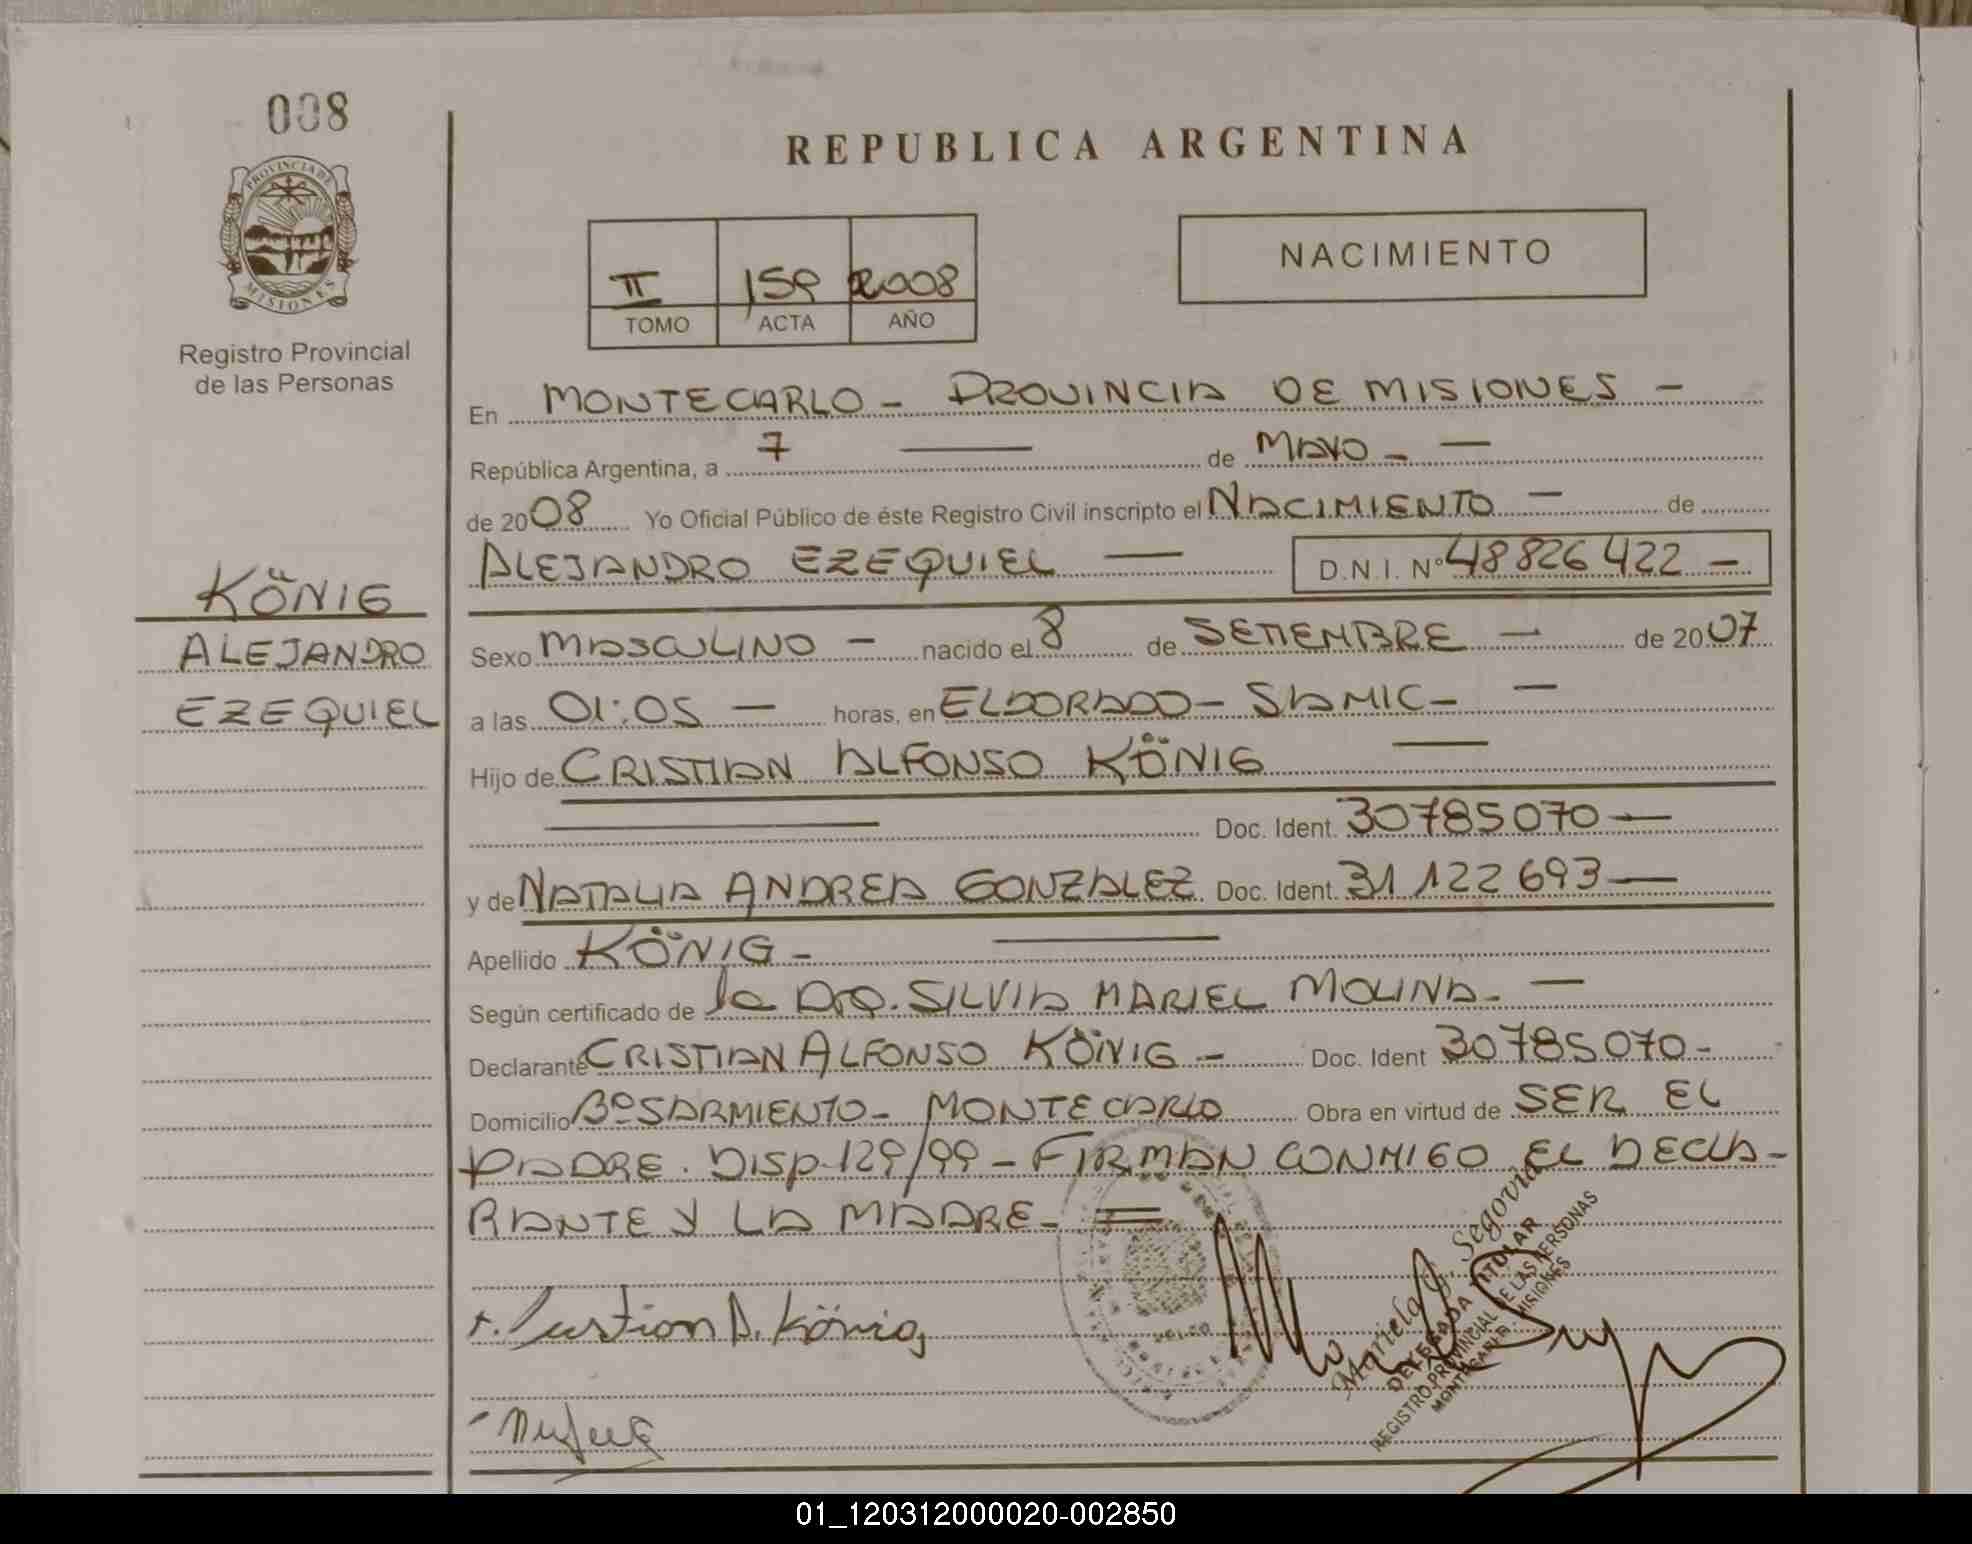 008
PROVINCIA DE
MISIONES
Registro Provincial
de las Personas
KÖNIG
ALEJANDRO
EZEQUIEL
REPUBLICA ARGENTINA
II 159 2008
TOMO ACTA AÑO
NACIMIENTO
En MONTECARLO - PROVINCIA DE MISIONES -
República Argentina, a 7 — de MAYO - —
de 2008 Yo Oficial Público de éste Registro Civil inscripto el NACIMIENTO — de
ALEJANDRO EZEQUIEL — D.N.I. Nº 48826422 -
Sexo MASCULINO - nacido el 8 de SETIEMBRE — de 2007
a las 01:05 — horas, en ELDORADO - SAMIC - —
Hijo de CRISTIAN ALFONSO KÖNIG —
— Doc. Ident. 30785070 —
y de NATALIA ANDREA GONZALEZ Doc. Ident. 31122693 —
Apellido KÖNIG - —
Según certificado de la Dra. SILVIA MARIEL MOLINA - —
Declarante CRISTIAN ALFONSO KÖNIG - Doc. Ident 30785070 -
Domicilio Bº SARMIENTO - MONTECARLO Obra en virtud de SER EL
PADRE. DISP. 129/99 - FIRMAN CONMIGO EL DECLA-
RANTE Y LA MADRE - =
Cristian A. König
Mariela J. Segovia
DELEGADA TITULAR
REGISTRO PROVINCIAL DE LAS PERSONAS
MONTECARLO - MISIONES
01_120312000020-002850